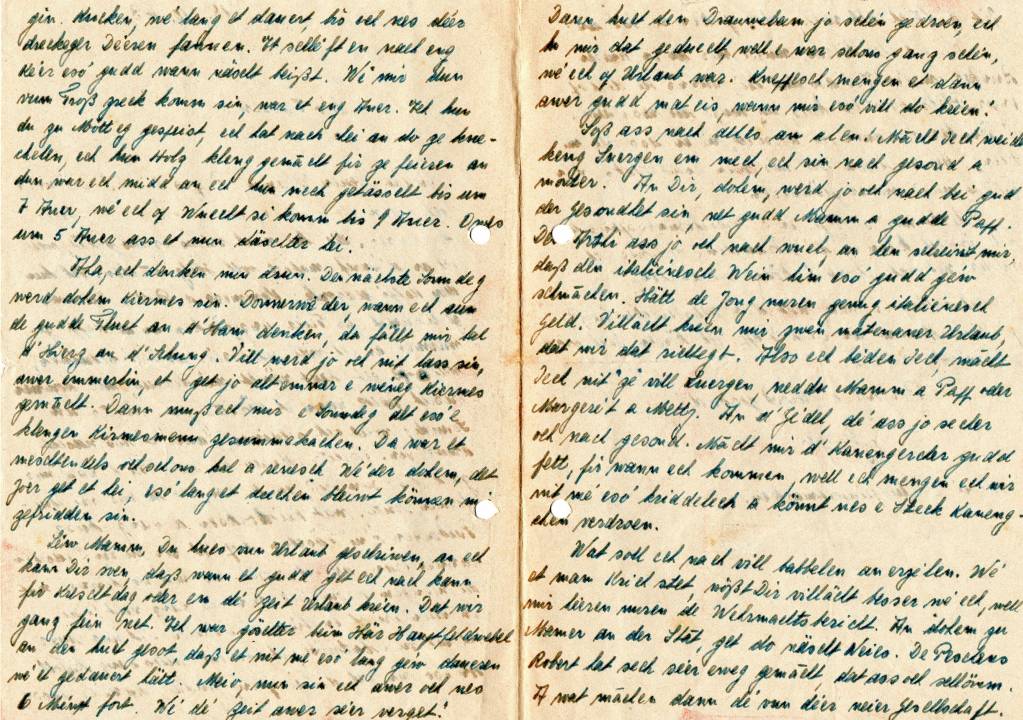 gin. Krucken, wé lang et dauert, bis och nes déér
dreckeger Déeren fannen. It selléft en nach eng
Kéer esó gudd wann näselt beißt. Wé mir hun
vum Troß zreck komm sin, war et eng Auer. Ich hun
du zu Mötteg gespeist, ech hat nach hei an do ze knue-
chelen, ech hun Holz kleng gemaelt fir ze feieren an
dun war ech midd an ech hun nech getässelt bis um
7 Auer, wé ech op Wuecht si komm bis 9 Auer. Owes
um 5 Auer ass et nun däselter hei.
Ala, ech denken nun drun. De nächste Sonndeg
werd dohem Kiermes sin. Donnerwéder, wann ech um
de gudde Fluet an d'Ham denken, da fällt mir bal
d'Hierz an d'Schung. Vill werd jo och nit lass sin,
awer ëmmerhin, et get jo alt ëmmer e wéneg Kiermes
gemaelt. Dann muß ech mir e Sonndeg alt esó e
klenge Kirmesmenu zesummekachen. Da war et
meschtendels och schons bal a senesch. Wéder dohem, dét
Joer get et hei, esó langet deschen bleiwt können mi
zefridden sin.
Léiw Mamm, Du hues vun Urlaub geschriwen, an ech
kann Dir soen, daß wann et gudd get ech nach kann
fir Krëschtdag oder em dé Zeit Urlaub kréien. Dat wir
ganz fein net. Ich war gëschter bim Här Hauptfeldwebel
an den huet gesot, daß et nit mé esó lang géiw daueren
wé et gedauert hätt. Meiv, nun sin ech awer och nes
6 Méint fort. Wé dé Zeit awer séier verget!
Dann huet den Drauwebam jo schén gedroen, ech
hu mir dat geduecht, well e war schons ganz schén,
wé ech op Urlaub war. Kneffesch mengen et dann
awer gudd mat eis, wann mir esó vill do kréien!
Soß ass nach alles am alen! Maelt Iech weider
keng Suergen em mech, ech sin nach gesond a
monter. An Dir, dohem, werd jo och nach bei gud-
der Gesondhet sin, net gudd Mamm a gudde Papp.
Den Arthi ass jo och nach wuel, an den scheint mir,
daß den italiénesche Wein him esó gudd géiw
schmaachen. Hätt de Jong nuren genug italiénesch
Geld. Villäicht kréien mir zwen matenaner Urlaub,
dat mir dat siellegt. Also ech bieden Iech, maelt
Iech nit ze vill Suergen, weder Mamm a Papp oder
Margeréit a Metty. An d'Zédel, dé ass jo secher
och nach gesond. Maelt mir d'Kanengercher gudd
fett, fir wann ech kommen, well ech mengen ech wir
nit mé esó kriddelech a könnt nes e Steck Kaneng-
chen verdroen.
Wat soll ech nach vill babbelen an erzielen. Wé
et mam Krich stet, wößt Dir villäicht besser wé ech, well
mir héieren nuren de Wehrmachtsbericht. An dohem zu
Mamer an der Stat, get do näischt Neies. De Peschens
Robert hat sech séier eweg gemaelt, dat ass och sellëwen.
A wat maachen dann dé vun déer neier Gesellschaft.